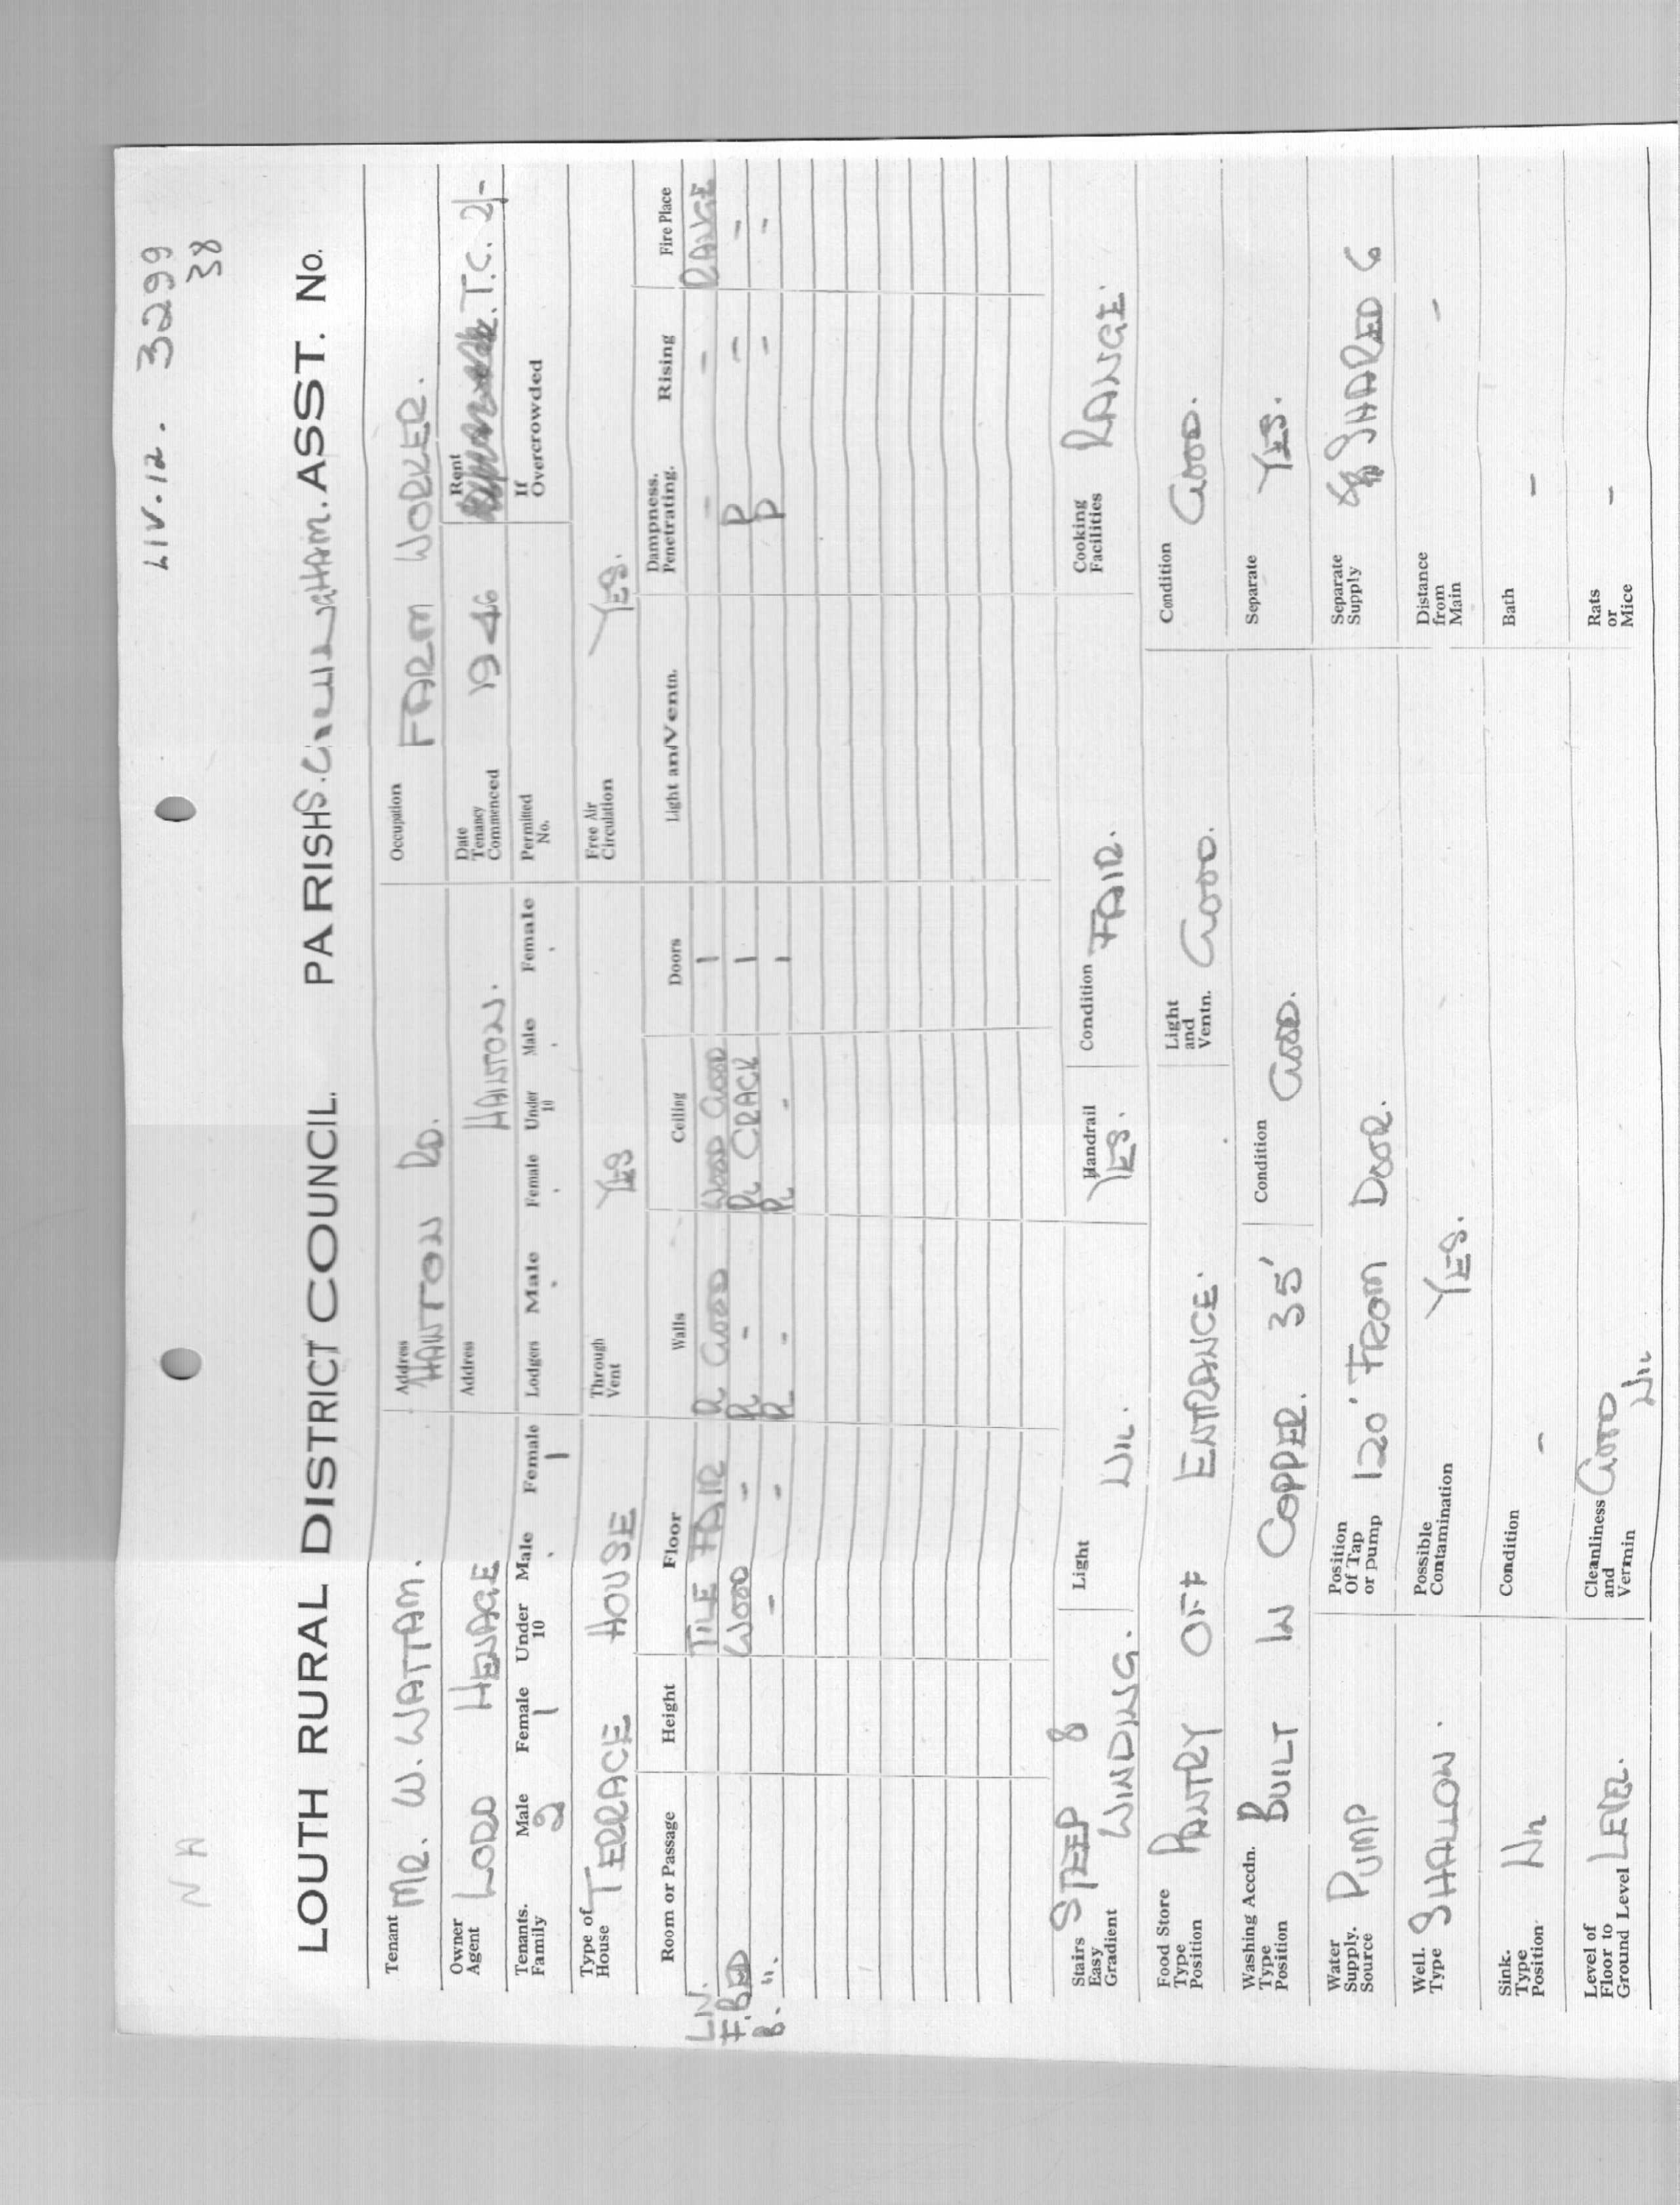 N A
LIV.12. 3299
38
LOUTH RURAL DISTRICT COUNCIL. PARISH ASST. No.
Tenant MR. W. WATTAM. Address HAINTON RD. Occupation FARM WORKER.
Owner Agent LORD HENAGE Address HAINTON. Date Tenancy Commenced 1946 Rent T.C. 2/-
Tenants. Family Male 2 Female 1 Under 10 Male Female 1 Lodgers Male Female Under 10 Male Female Permitted No. If Overcrowded
Type of House TERRACE HOUSE Through Vent YES Free Air Circulation YES.
Room or Passage Height Floor Walls Ceiling Doors Light and Ventn. Dampness. Penetrating. Rising Fire Place
LIV. TILE FAIR PL GOOD WOOD GOOD 1 - - RANGE
F. BED WOOD - PL - PL CRACK 1 P - -
B. ". - - PL - PL - 1 P - -
Stairs Easy Gradient STEEP 8 WINDING. Light NIL. Handrail YES. Condition FAIR. Cooking Facilities RANGE.
Food Store Type Position PANTRY OFF ENTRANCE. Light and Ventn. GOOD. Condition GOOD.
Washing Accdn. Type Position BUILT IN COPPER. 35' Condition GOOD. Separate YES.
Water Supply. Source PUMP Position Of Tap or pump 120' FROM DOOR. Separate Supply SHARED 6
Well. Type SHALLOW. Possible Contamination YES. Distance from Main -
Sink. Type Position NIL Condition - Bath -
Level of Floor to Ground Level LEVEL. Cleanliness and Vermin GOOD NIL Rats or Mice -